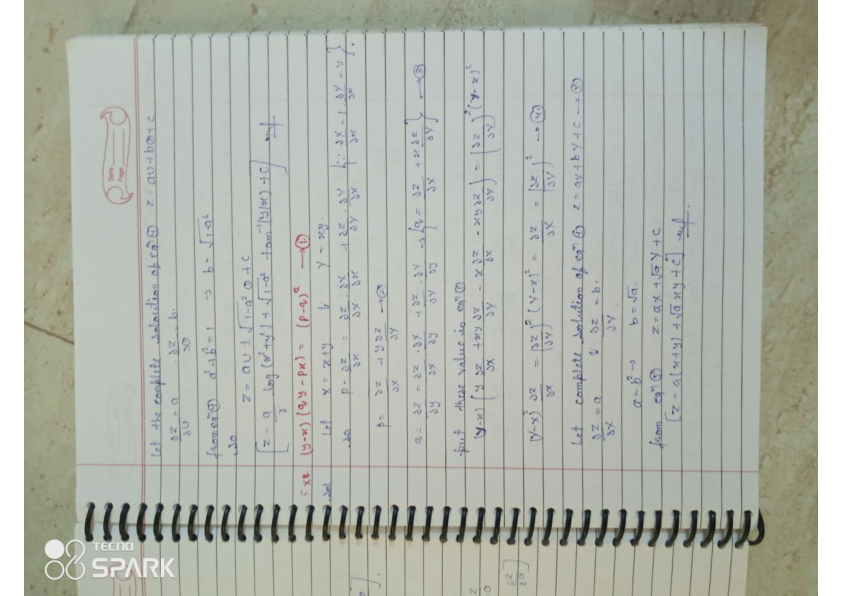 Date
Page
Let the complete solution of eqn z = aU + bθ + c
∂z/∂U = a , ∂z/∂θ = b.
from eqn a² + b² = 1 ⇒ b = √1-a²
so z = aU ± √1-a² θ + c
[z = a/2 log(x²+y²) + √1-a² tan⁻¹(y/x) + c]
(y-x)(qy - px) = (p-q)² → ①
Sol Let X = x+y & Y = xy.
so p = ∂z/∂x = ∂z/∂X · ∂X/∂x + ∂z/∂Y · ∂Y/∂x {∵ ∂X/∂x = 1, ∂Y/∂x = y}.
p = ∂z/∂X + y ∂z/∂Y → ②
q = ∂z/∂y = ∂z/∂X · ∂X/∂y + ∂z/∂Y · ∂Y/∂y → {q = ∂z/∂X + x ∂z/∂Y} → ③
put these value in eqn ①
(y-x) {y ∂z/∂X + xy ∂z/∂Y - x ∂z/∂X - xy ∂z/∂Y} = (∂z/∂Y)² (y-x)²
(y-x)² ∂z/∂X = (∂z/∂Y)² (y-x)² = ∂z/∂X = (∂z/∂Y)² → ④
Let complete solution of eqn z = aX + bY + c →
∂z/∂X = a & ∂z/∂Y = b.
a = b² ⇒ b = √a.
from eqn z = aX + √a Y + c
[z = a(x+y) + √a xy + c]
TECNO
SPARK